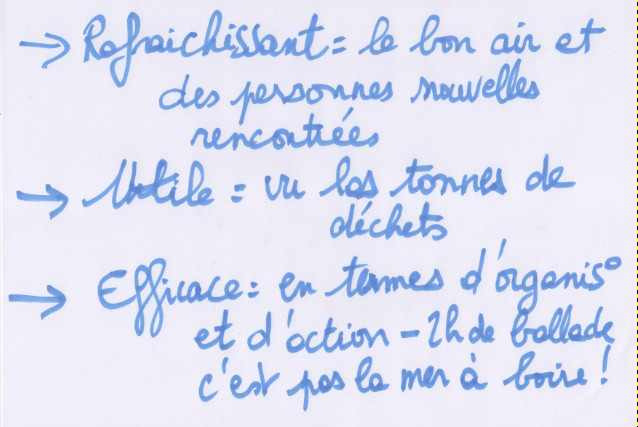 → Rafraichissant = le bon air et
des personnes nouvelles
rencontrées
→ Utile = vu les tonnes de
déchets
→ Efficace = en termes d'organis°
et d'action - 2h de ballade
c'est pas la mer à boire !